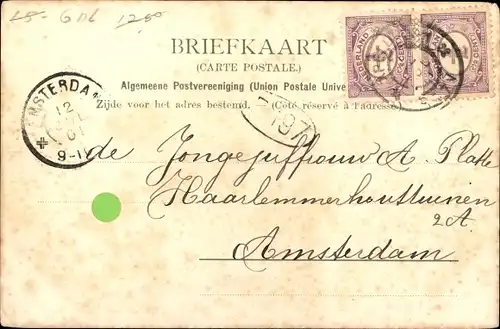 6 Db 12.50
BRIEFKAART
(CARTE POSTALE.)
Algemeene Postvereeniging (Union Postale Unive
Zijde voor het adres bestemd. — (Côté réservé à l'adresse)
AMSTERDA
12
01
9-1
197
de Jongejuffrouw A. Platte
Haarlemmerhouttuinen
2A
Amsterdam